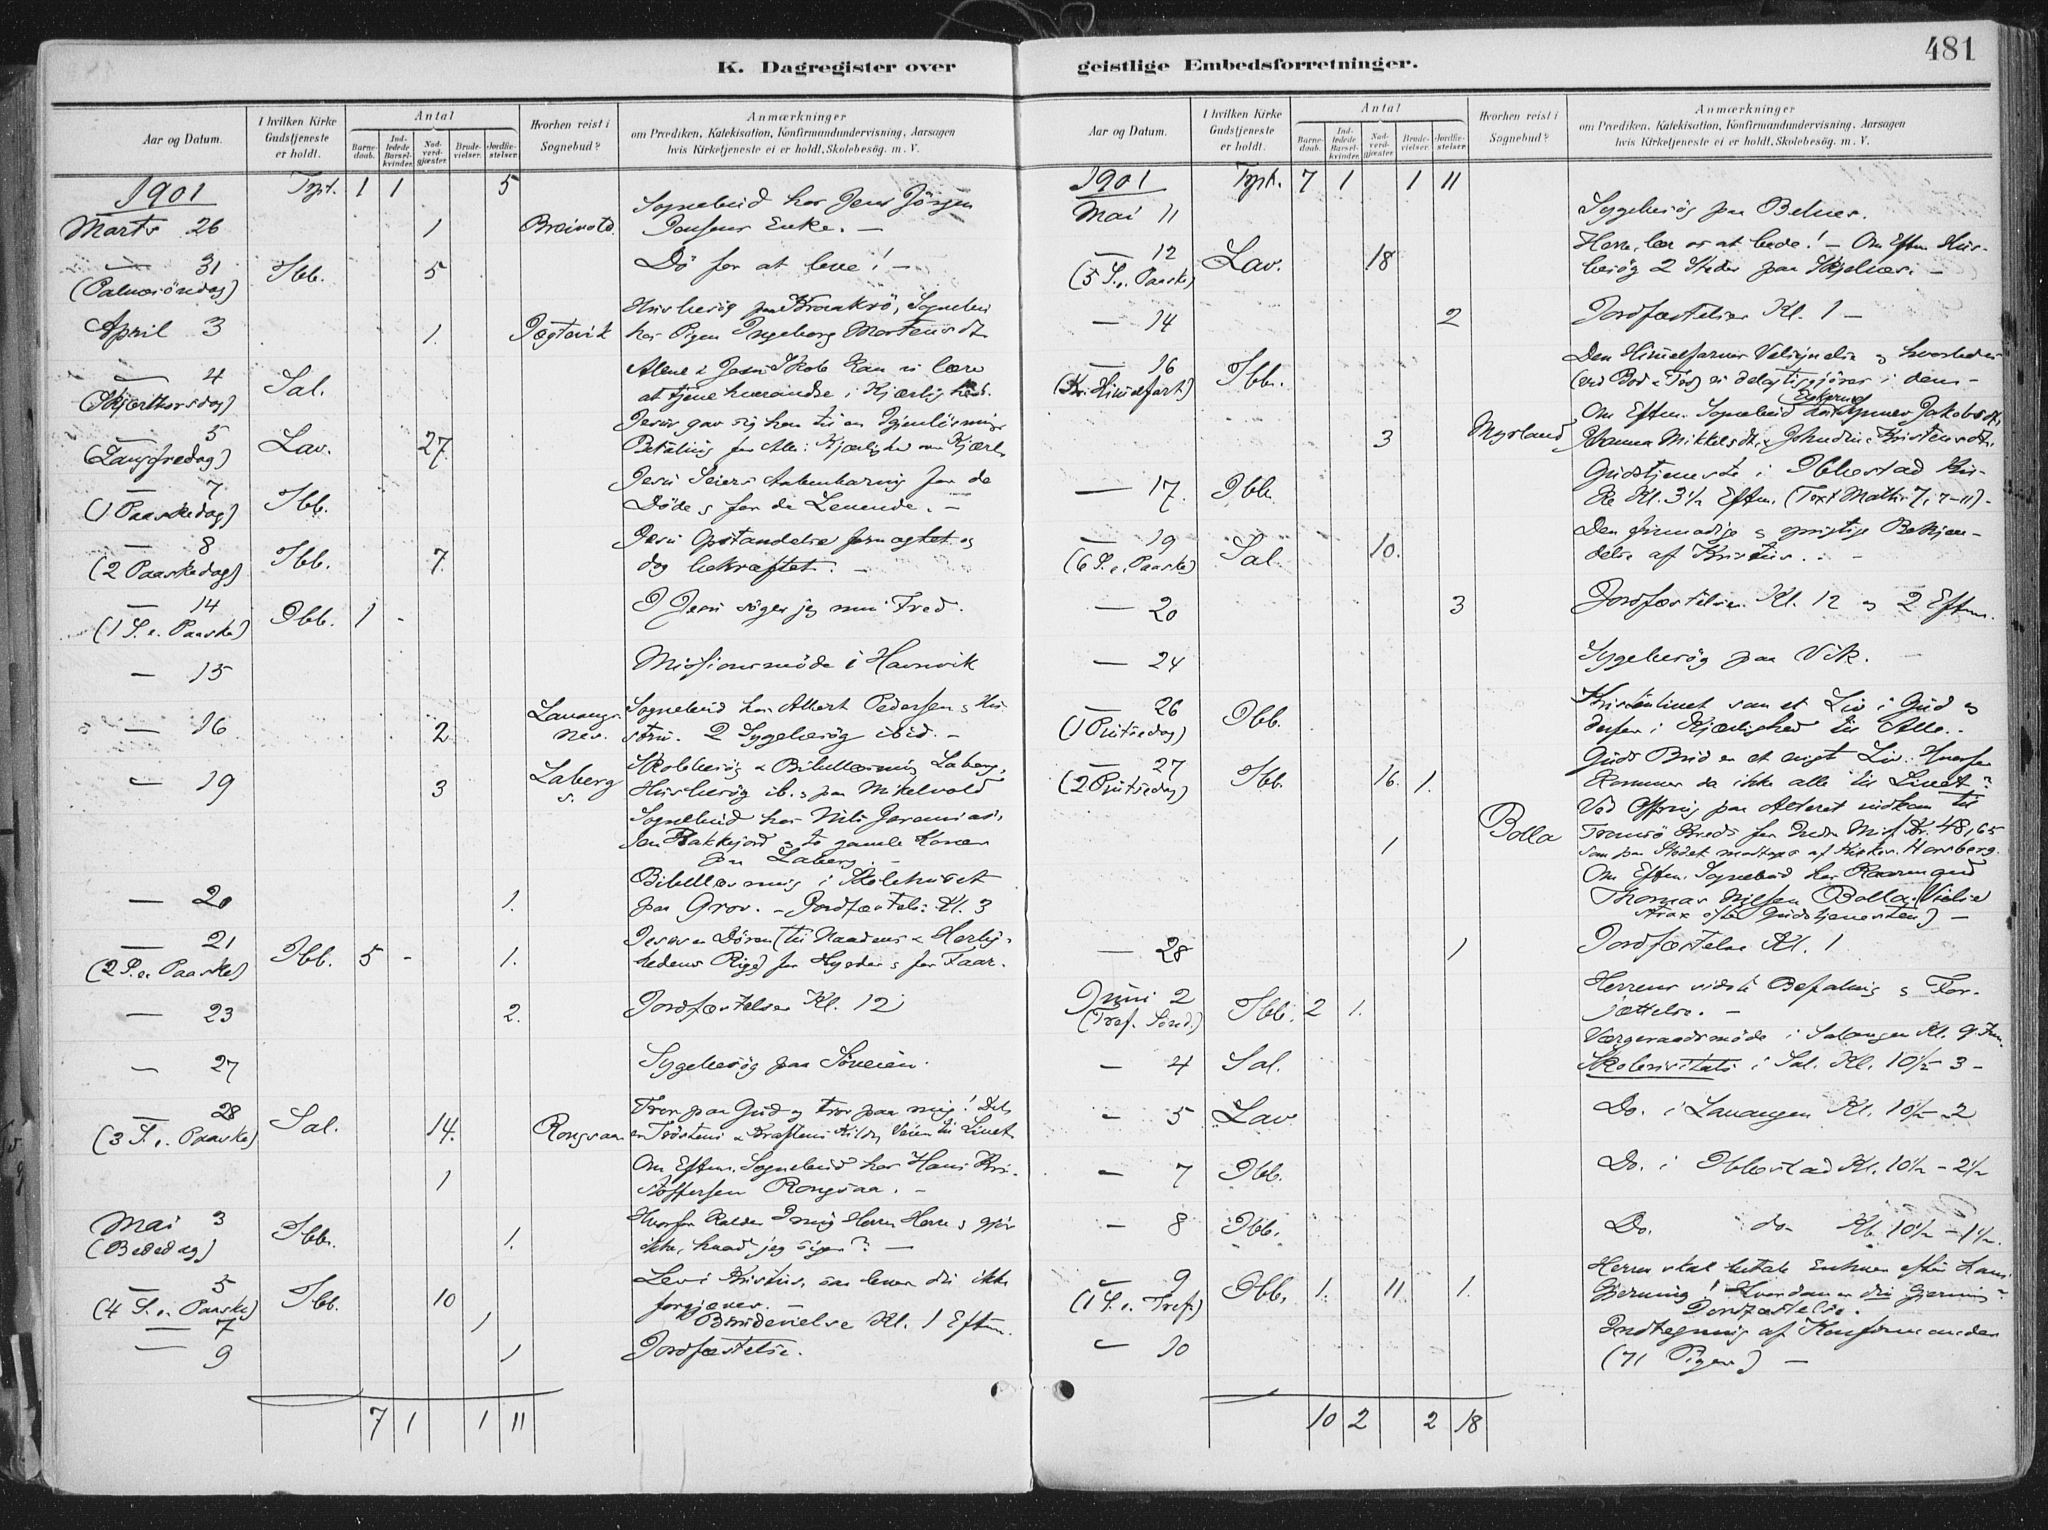 K. Dagregister over
Aar og Datum.
I hvilken Kirke Gudstjeneste er holdt.
Antal
Barnedaab.
Indledede Barselkvinder.
Nadverdgjæster.
Brudevielser.
Jordfæstelser.
Hvorhen reist i Sognebud?
Anmærkninger
om Prædiken, Katekisation, Konfirmandundervisning, Aarsagen
hvis Kirketjeneste ei er holdt, Skolebesøg. m. V.
1901 Tpt. 1 1 5
Marts 26 1 Breivold. Sognebud hos Jens Jörgen
Jensens Enke. —
— 31 Ibb. 5 Dö for at leve! —
(Palmesöndag)
April 3 1. Jægtevik Husbesög paa Sognebud
hos Pigen Ingeborg Mortensdt.
— 4 Sal. Alene i Jesu Skole kan vi lære
(Skjærthorsdag) at tjene hverandre i Kjærlighed.
— 5 Lav. 27. Jesus gav sig hen til en Igjenlösnings
(Langfredag) Betaling for Alle: Kjærlighed om Kjærl.
— 7 Ibb. Jesu Seiers Aabenbaring for de
(1 Paaskedag) Döde & for de Levende. —
— 8 Ibb. 7. Jesu Opstandelse fornegtet og
(2 Paaskedag) dog bekræftet. —
— 14 Ibb. 1 - I Jesu söger jeg min Fred.
(1 S. e. Paaske)
— 15 Missionsmöde i Havnvik
— 16 2 Lavangsnes. Sognebud hos Albert Pedersen & Hustru. 2 Sygebesög ibid. —
— 19 3 Laberg s. Skolebesög & Bibellæsning Laberg,
Husbesög ib. & paa Mikelvold
Sognebud hos Nils Jeremiassen
Bakkejord & to gamle Koner
paa Laberg. —
— 20 1. Bibellæsning i Skolehuset
paa Grov. — Jordfæstels: Kl. 3
— 21 Ibb. 5 - 1. Jesus er Dören (til Naadens & Herlig-
(2 S. e. Paaske) hedens Rige) for Hyrder & for Faar.
— 23 2. Jordfæstelser Kl. 12
— 27 Sygebesög paa Söveien.
— 28 Sal. 14. Rongsaa Tror paa Gud og tror paa mig! Det
(3 S. e. Paaske) er Tröstens & Kraftens Kilde, Veien til Livet
1 Om Eftm. Sognebud hos Hans Kri-
stoffersen Rongsaa. —
Mai 3 Ibb. 1. Hvorfor kalder I mig Herre Herre & gjör
(Bededag) ikke, hvad jeg siger? —
— 5 Ibb. 10 Lev i Kristus, saa lever du ikke
(4 S. e. Paaske) forgjæves. —
— 7 1 Brudevielse Kl. 1 Eftm.
— 9 1 Jordfæstelse.
7 1 1 11
481
geistlige Embedsforretninger.
Aar og Datum.
I hvilken Kirke Gudstjeneste er holdt.
Antal
Barnedaab.
Indledede Barselkvinder.
Nadverdgjæster.
Brudevielser.
Jordfæstelser.
Hvorhen reist i Sognebud?
Anmærkninger
om Prædiken, Katekisation, Konfirmandundervisning, Aarsagen
hvis Kirketjeneste ei er holdt, Skolebesøg. m. V.
1901 Tpt. 7 1 1 11
Mai 11 Sygebesög paa Belnes.
— 12 Lav. 18 Herre, lær os at bede! — Om Eftm Hus-
(5 S. e. Paaske) besög 2 Steder paa Skjelnes: —
— 14 2 Jordfæstelser Kl. 1 —
— 16 Ibb. Den Himmelfarnes Velsignelse & hvorledes
(Kr. Himmelfart) (ved Bod & Tro) vi delagtiggjöres i den —
3 Myrland Om Eftm. Sognebud hos Enkerne Jakobsdt,
Johanna Mikkelsdt. & Kristensdt.
— 17. Ibb. Gudstjeneste i Ibbestad Kir-
ke Kl. 3½ Eftm. (Text Matth: 7, 7-11) -
— 19 Sal. 10. Den frimodige & oprigtige Bekjen-
(6 S. e. Paaske) delse af Kristus. -
— 20 3 Jordfæstelser Kl. 12 og 2 Eftm.
— 24 Sygebesög paa Vik. —
— 26 Ibb. Kristenlivet som et Liv i Gud &
(1 Pintsedag) derfor i Kjærlighed til Alle. -
— 27 Ibb. 16. 1. Guds Bud er et evigt Liv. Hvorfor
(2 Pintsedag) kommer da ikke alle til Livet?
Bolla Ved Ofring paa Alteret indkom til
1 Tromsö Kreds for Indre Miss. Kr. 48,65
som paa Stedet modtoges af Horsberg.
Om Eftm. Sognebud hos
Thomas Nilsen Bolla. (Vielse
strax efter Gudstjenesten) —
— 28 1 Jordfæstelse Kl. 1
Juni 2 Ibb. 2 1. Herrens sidste Befaling & For-
(Tref. Sönd.) jættelse. —
Værgeraadsmöde i Salangen Kl. 9 Fm.
— 4 Sal. Skolevisitats i Sal. Kl. 10½-3 -
— 5 Lav Do. i Lavangen Kl. 10½-2
— 7 Ibb. Do. i Ibbestad Kl. 10½-2½
— 8 Ibb. Do. do Kl. 10½-1½.
— 9 Ibb. 1. 11 1. Herren skal betale Enhver efter hans
(1 S. e. Tref.) Gjerning! Hvordan er din Gjerning?
Jordfæstelse.
— 10 Indtegning af Konfirmander
(71 Piger) —
10 2 2 18